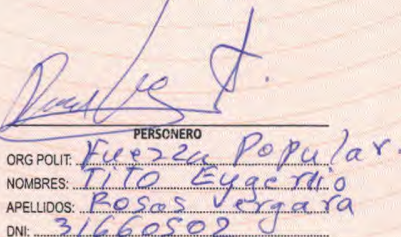 PERSONERO
ORG POLIT: Fuerza Popular.
NOMBRES: Tito Eugenio
APELLIDOS: Rosas Vergara
DNI: 31660502